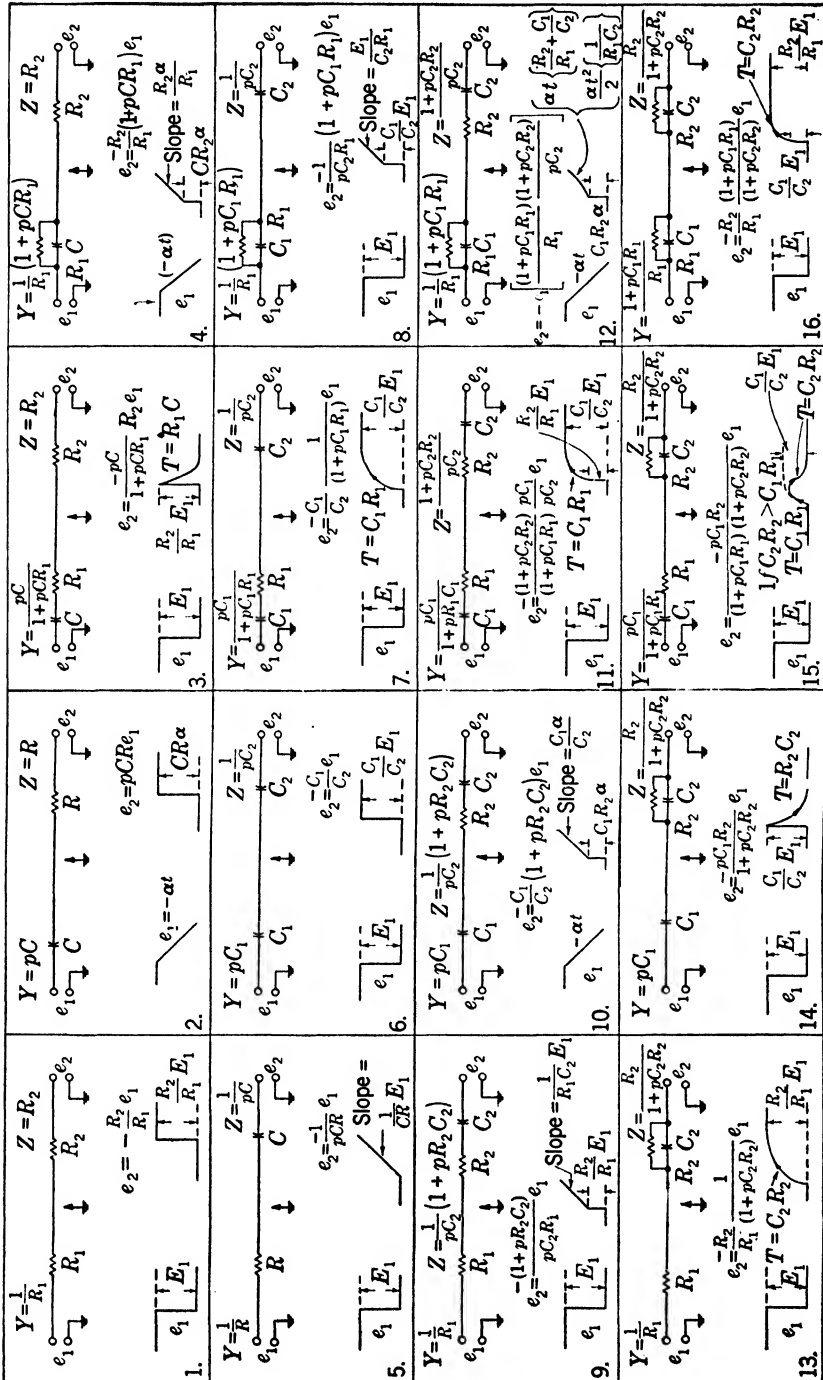 1.
Y=1/R₁
Z=R₂
e₁
R₁
R₂
e₂
e₂=-R₂/R₁ e₁
e₁
E₁
R₂/R₁ E₁
2.
Y=pC
Z=R
e₁
C
R
e₂
e₂=pCRe₁
e₁=-αt
CRα
3.
Y=pC/1+pCR₁
Z=R₂
e₁
C
R₁
R₂
e₂
e₂=-pC/1+pCR₁ R₂e₁
e₁
E₁
R₂/R₁ E₁
T=R₁C
4.
Y=1/R₁(1+pCR₁)
Z=R₂
e₁
R₁
C
R₂
e₂
e₂=-R₂/R₁(1+pCR₁)e₁
(-αt)
e₁
Slope=R₂α/R₁
CR₂α
5.
Y=1/R
Z=1/pC
e₁
R
C
e₂
e₂=-1/pCR e₁
e₁
E₁
Slope=
1/CR E₁
6.
Y=pC₁
Z=1/pC₂
e₁
C₁
C₂
e₂
e₂=-C₁/C₂ e₁
e₁
E₁
C₁/C₂ E₁
7.
Y=pC₁/1+pC₁R₁
Z=1/pC₂
e₁
C₁
R₁
C₂
e₂
e₂=-C₁/C₂ 1/(1+pC₁R₁) e₁
e₁
E₁
T=C₁R₁
C₁/C₂ E₁
8.
Y=1/R₁(1+pC₁R₁)
Z=1/pC₂
e₁
C₁
R₁
C₂
e₂
e₂=-1/pC₂R₁ (1+pC₁R₁)e₁
e₁
E₁
Slope=E₁/C₂R₁
C₁/C₂ E₁
9.
Y=1/R₁
Z=1/pC₂(1+pR₂C₂)
e₁
R₁
R₂
C₂
e₂
e₂=-(1+pR₂C₂)/pC₂R₁ e₁
e₁
E₁
Slope=1/R₁C₂ E₁
R₂/R₁ E₁
10.
Y=pC₁
Z=1/pC₂(1+pR₂C₂)
e₁
C₁
R₂
C₂
e₂
e₂=-C₁/C₂(1+pR₂C₂)e₁
e₁
-αt
Slope=C₁α/C₂
C₁R₂α
11.
Y=pC₁/1+pR₁C₁
Z=1+pC₂R₂/pC₂
e₁
C₁
R₁
R₂
C₂
e₂
e₂=-(1+pC₂R₂)/(1+pC₁R₁) pC₁/pC₂ e₁
e₁
E₁
T=C₁R₁
R₂/R₁ E₁
C₁/C₂ E₁
12.
Y=1/R₁(1+pC₁R₁)
Z=1+pC₂R₂/pC₂
e₁
R₁
C₁
R₂
C₂
e₂
e₂=- [(1+pC₁R₁)/R₁ (1+pC₂R₂)/pC₂]
e₁
-αt
C₁R₂α
αt{R₂/R₁+C₁/C₂}
αt²/2{1/R₁C₂}
13.
Y=1/R₁
Z=R₂/1+pC₂R₂
e₁
R₁
R₂
C₂
e₂
e₂=-R₂/R₁ 1/(1+pC₂R₂) e₁
e₁
E₁
T=C₂R₂
R₂/R₁ E₁
14.
Y=pC₁
Z=R₂/1+pC₂R₂
e₁
C₁
R₂
C₂
e₂
e₂=-pC₁R₂/1+pC₂R₂ e₁
e₁
E₁
C₁/C₂ E₁
T=R₂C₂
15.
Y=pC₁/1+pC₁R₁
Z=R₂/1+pC₂R₂
e₁
C₁
R₁
R₂
C₂
e₂
e₂=-pC₁R₂/(1+pC₁R₁)(1+pC₂R₂) e₁
If C₂R₂>C₁R₁
e₁
E₁
T=C₁R₁
C₁/C₂ E₁
T=C₂R₂
16.
Y=1+pC₁R₁/R₁
Z=R₂/1+pC₂R₂
e₁
R₁
C₁
R₂
C₂
e₂
e₂=-R₂/R₁ (1+pC₁R₁)/(1+pC₂R₂) e₁
e₁
E₁
C₁/C₂ E₁
T=C₂R₂
R₂/R₁ E₁